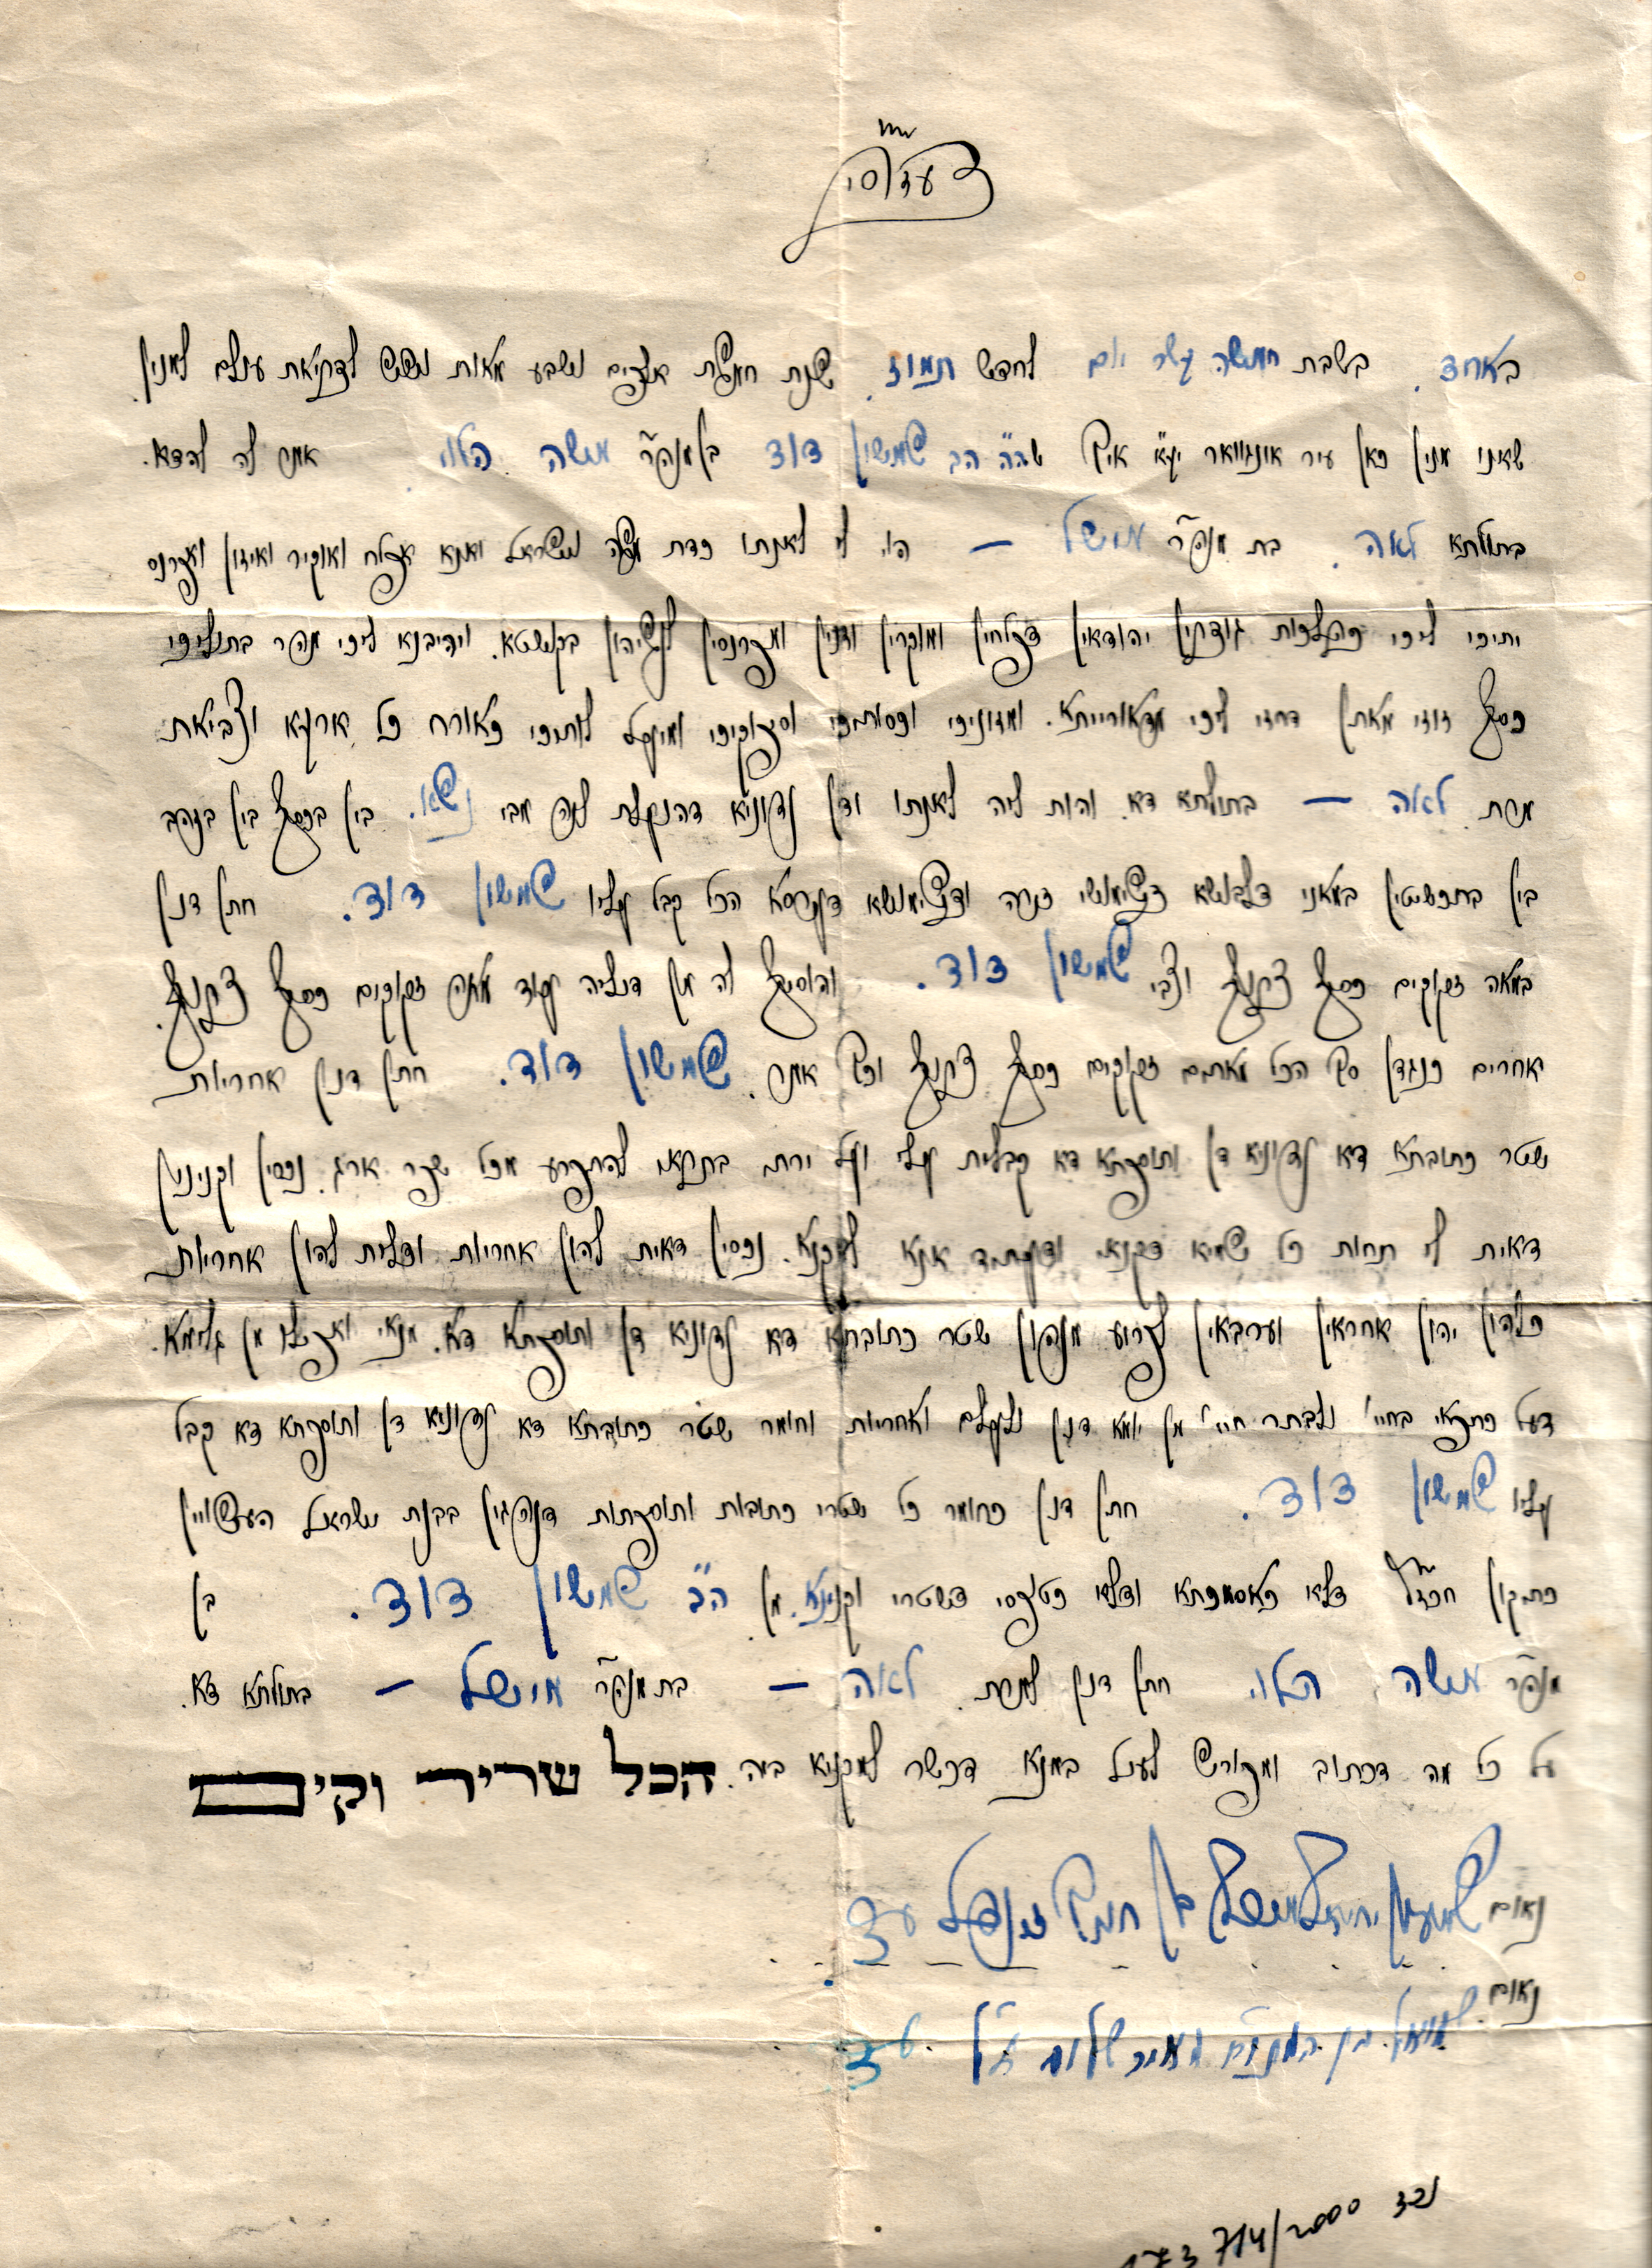 באחד בשבת חמשה עשר יום לחדש תמוז שנת חמשת אלפים ושבע מאות ושש לבריאת עולם למנין
שאנו מנין כאן עיר אונגוואר יע"א איך הב' שמשון דוד בן מוהר"ר משה הלוי אמר לה להדא
בתולתא לאה בת מוהר"ר מישל – הוי לי לאנתו כדת משה וישראל ואנא אפלח ואוקיר ואיזון ואפרנס
יתיכי ליכי כהלכות גוברין יהודאין דפלחין ומוקרין וזנין ומפרנסין לנשיהון בקושטא. ויהיבנא ליכי מהר בתוליכי
כסף זוזי מאתן דחזי ליכי מדאורייתא. ומזוניכי וכסותיכי וסיפוקיכי ומיעל לותיכי כאורח כל ארעא וצביאת
מרת לאה – בתולתא דא והות ליה לאנתו ודן נדוניא דהנעלת ליה מבי נשא. בין בכסף בין בזהב
בין בתכשיטין במאני דלבושא דשימושי דירה ודשימושא דערסא הכל קבל עליו שמשון דוד. חתן דנן
במאה זקוקים כסף צרוף וצבי שמשון דוד. והוסיף לה מן דיליה עוד מאה זקוקים כסף צרוף
אחרים כנגדן סך הכל מאתים זקוקים כסף צרוף וכך אמר שמשון דוד. חתן דנן אחריות
שטר כתובתא דא נדוניא דן ותוספתא דא קבלית עלי ועל ירתי בתראי להתפרע מכל שפר ארג נכסין וקנינין
דאית לי תחות כל שמיא דקנאי ודעתיד אנא למקנא. נכסין דאית להון אחריות ודלית להון אחריות
כלהון יהון אחראין וערבאין לפרוע מנהון שטר כתובתא דא נדוניא דן ותוספתא דא. מנאי ואפילו מן גלימא
דעל כתפאי בחיי ולבתר חיי מן יומא דנן ולעלם ואחריות וחומר שטר כתובתא דא נדוניא דן ותוספתא דא קבל
עליו שמשון דוד. חתן דנן כחומר כל שטרי כתובות ותוספתות דנהגין בבנת ישראל העשויין
כתקון חכז"ל דלא כאסמכתא ודלא כטופסי דשטרי וקנינא מן הב' שמשון דוד. בן
מוהר"ר משה הלוי חתן דנן למרת לאה – בת מוהר"ר מישל – בתולתא דא
על כל מה דכתוב ומפורש לעיל במנא דכשר למקניא ביה. הכל שריר וקים
נאום שמעון יחזקאל בן עד
נאום שמואל בן שלום ז"ל עד
714/2000